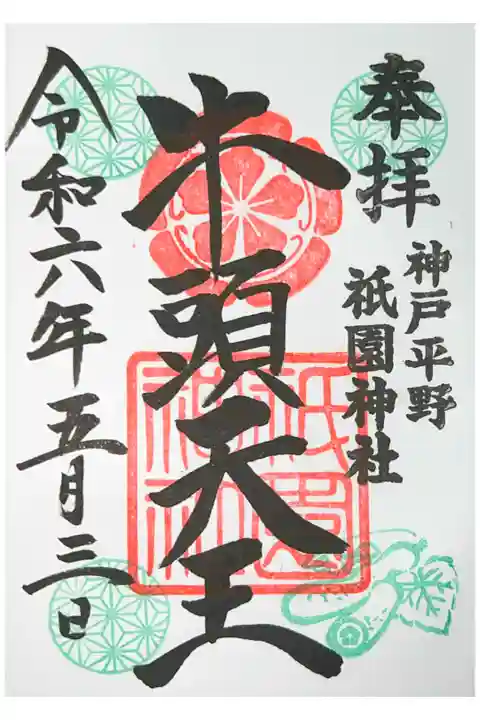 奉拝
神戸平野
祇園神社
牛頭天王
令和六年五月三日
祇園神社